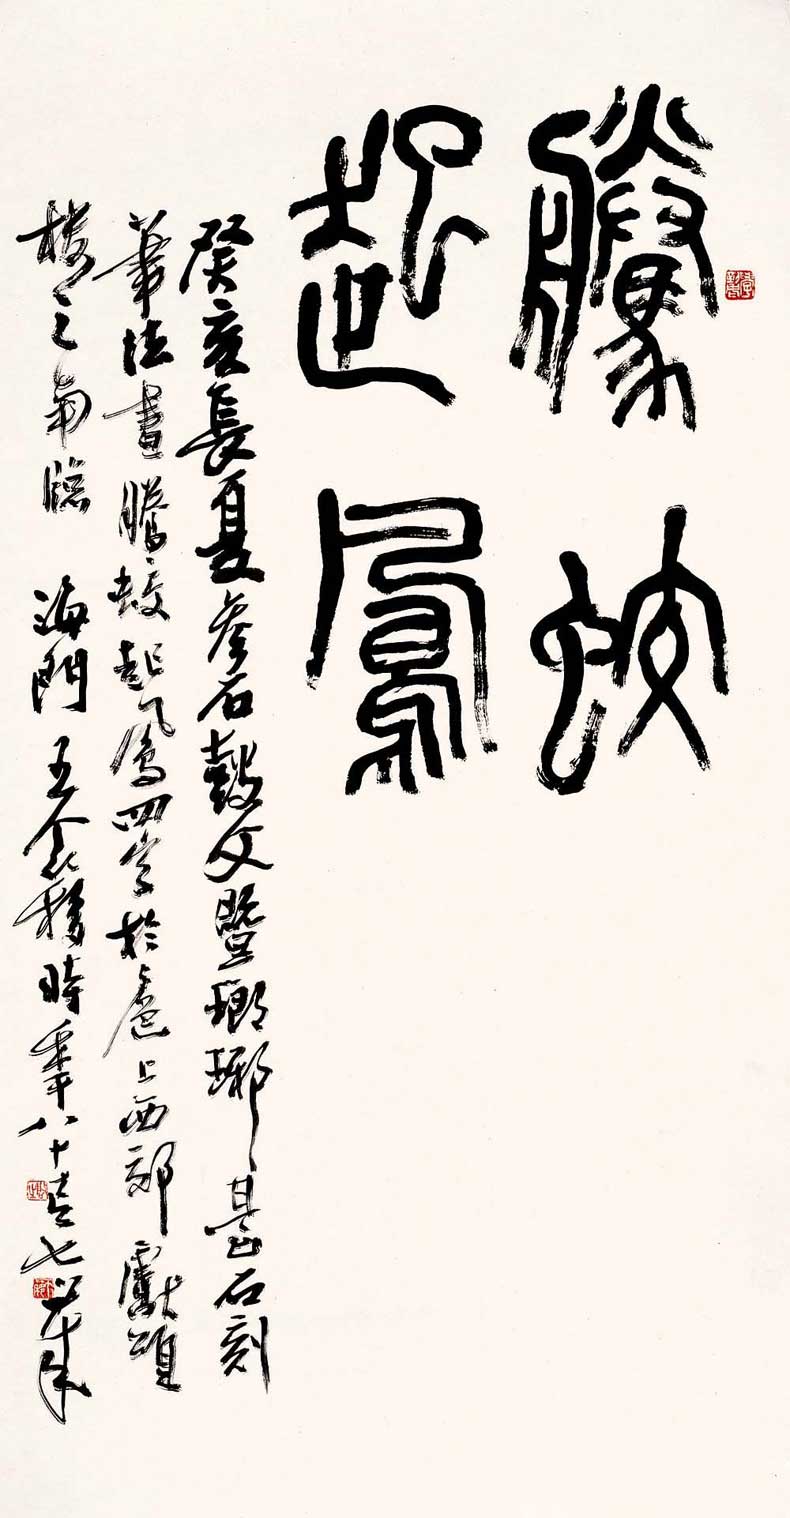 騰蛟
起鳳
癸亥長夏參石鼓文暨瑯琊臺石刻
筆法書騰蛟起鳳四字於滬上西郊獻
樓之南牕 海門王个簃時年八十七